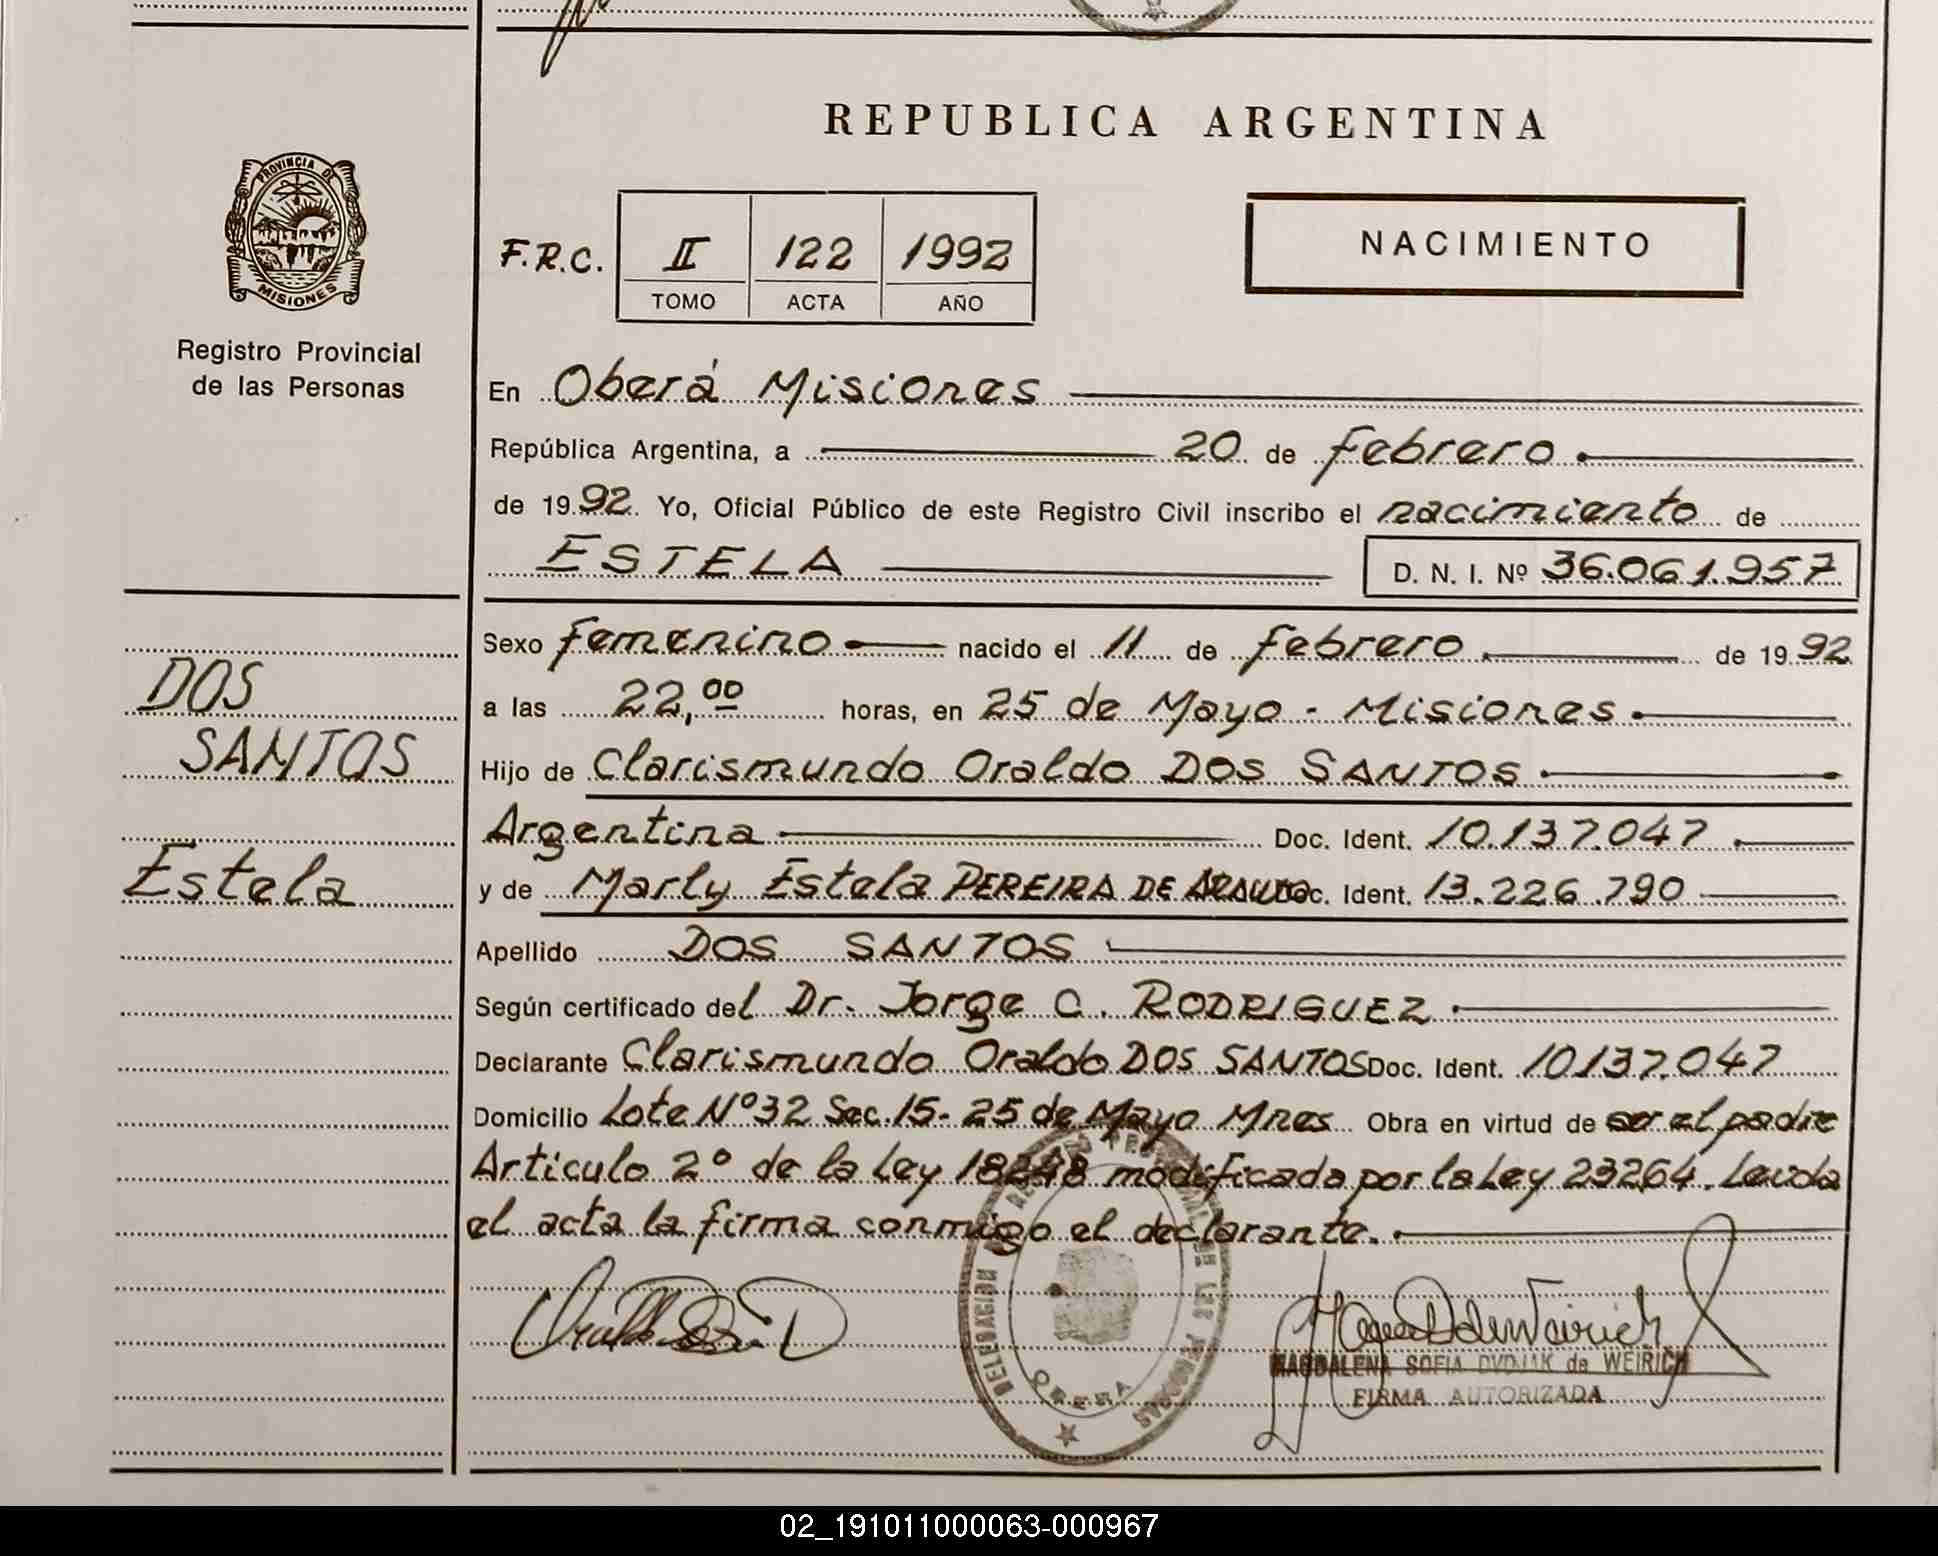 REPUBLICA ARGENTINA
PROVINCIA DE
MISIONES
Registro Provincial
de las Personas
F.R.C. II 122 1992
TOMO ACTA AÑO
NACIMIENTO
En Oberá Misiones
República Argentina, a 20 de febrero
de 1992. Yo, Oficial Público de este Registro Civil inscribo el nacimiento de
ESTELA D. N. I. Nº 36.061.957
DOS
SANTOS
Estela
Sexo femenino nacido el 11 de febrero de 1992
a las 22,00 horas, en 25 de Mayo - Misiones
Hijo de Clarismundo Oraldo DOS SANTOS
Argentina Doc. Ident. 10.137.047
y de Marly Estela PEREIRA DE ARAUJO Doc. Ident. 13.226.790
Apellido DOS SANTOS
Según certificado del Dr. Jorge C. RODRIGUEZ
Declarante Clarismundo Oraldo DOS SANTOS Doc. Ident. 10.137.047
Domicilio Lote Nº 32 Sec. 15 - 25 de Mayo Mnes Obra en virtud de ser el padre
Articulo 2º de la Ley 18248 modificada por la Ley 23264. Leida
el acta la firma conmigo el declarante.
DELEGACION DE LAS PERSONAS
OBERA
MAGDALENA SOFIA DVDJAK de WEIRICH
FIRMA AUTORIZADA
02_191011000063-000967